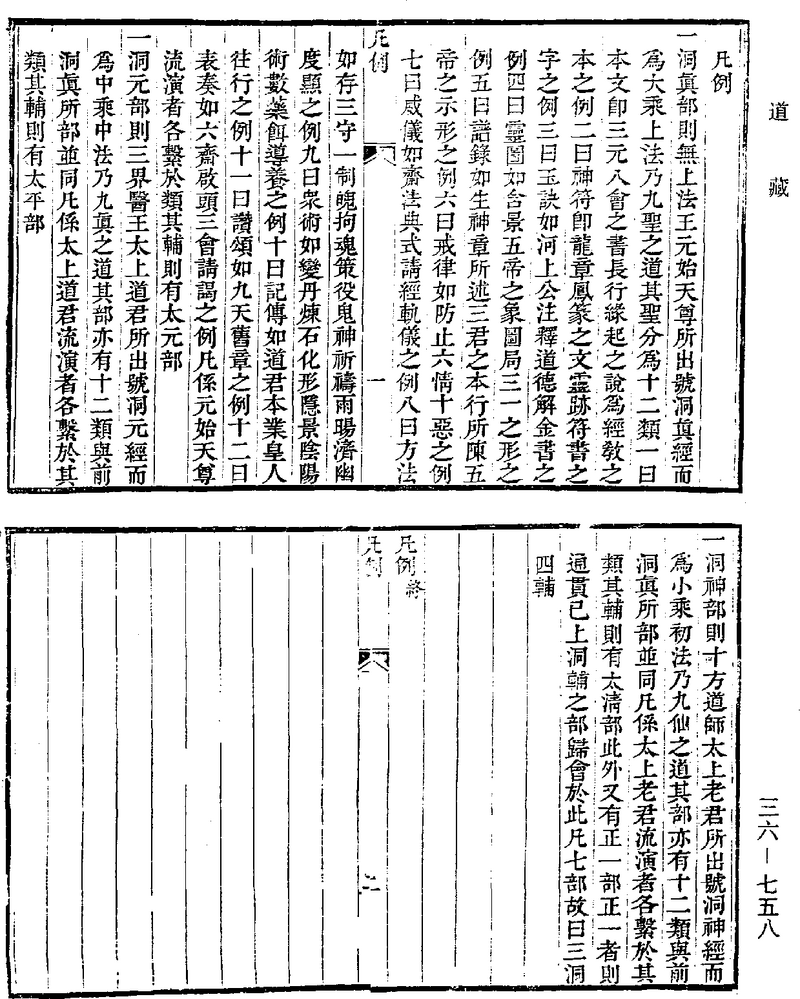 道藏
凡例
一洞真部則無上法王元始天尊所出號洞真經而
爲大乘上法乃九聖之道其聖分爲十二類一曰
本文卽三元八會之書長行緣起之說爲經教之
本之例二曰神符卽龍章鳳篆之文靈跡符書之
字之例三曰玉訣如河上公注釋道德解金書之
例四曰靈圖如含景五帝之象圖局三一之形之
例五曰譜錄如生神章所述三君之本行所陳五
帝之示形之例六曰戒律如防止六情十惡之例
七曰威儀如齋法典式請經軌儀之例八曰方法
凡例
一
如存三守一制魄拘魂策役鬼神祈禱雨暘濟幽
度顯之例九曰衆術如變丹煉石化形隱景陰陽
術數藥餌導養之例十曰記傳如道君本業皇人
往行之例十一曰讚頌如九天舊章之例十二曰
表奏如六齋啟頭三會請謁之例凡係元始天尊
流演者各繫於類其輔則有太元部
一洞元部則三界醫王太上道君所出號洞元經而
爲中乘中法乃九真之道其部亦有十二類與前
洞真所部並同凡係太上道君流演者各繫於其
類其輔則有太平部
一洞神部則十方道師太上老君所出號洞神經而
爲小乘初法乃九仙之道其部亦有十二類與前
洞真所部並同凡係太上老君流演者各繫於其
類其輔則有太淸部此外又有正一部正一者則
通貫已上洞輔之部歸會於此凡七部故曰三洞
四輔
凡例終
凡例
二
三六—七五八